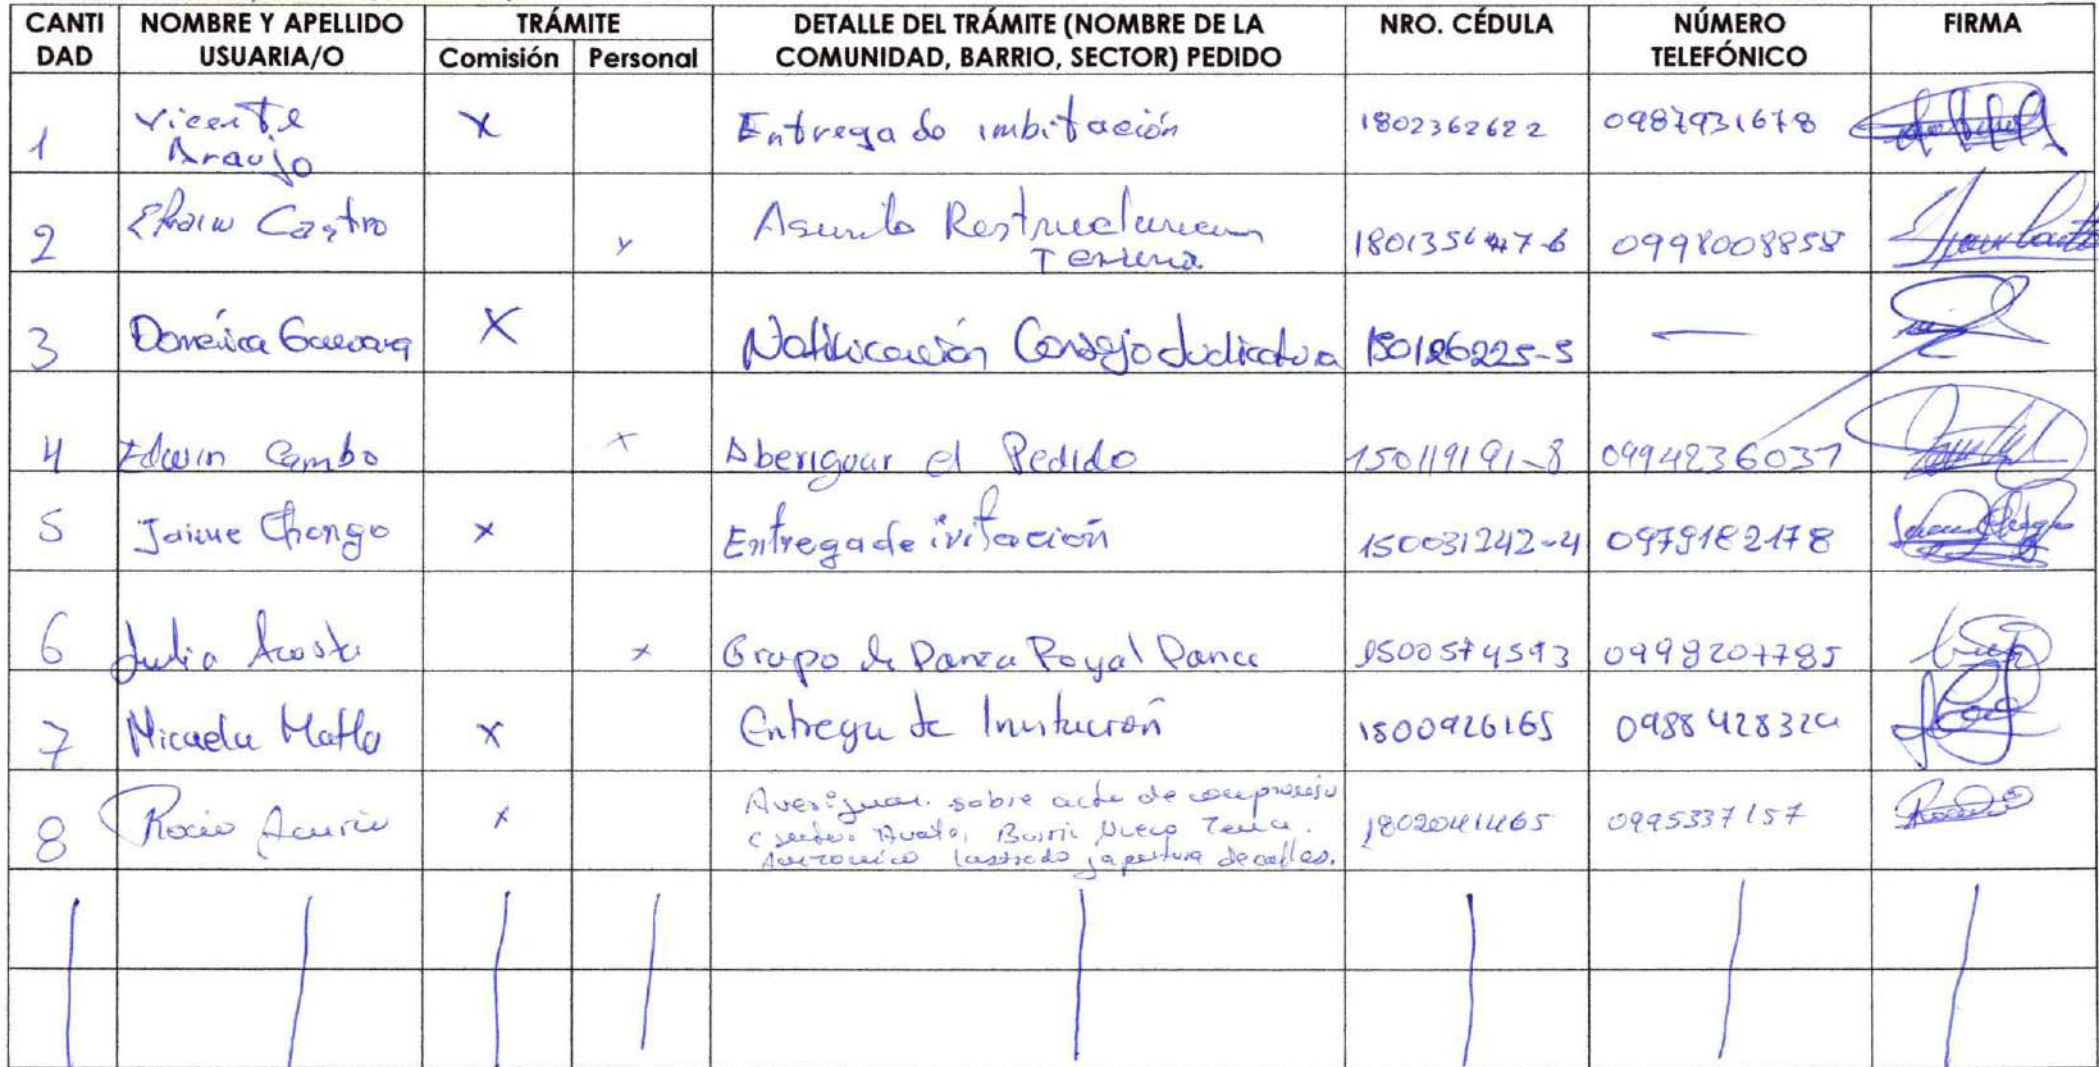 CANTI DAD | NOMBRE Y APELLIDO USUARIA/O | TRÁMITE Comisión Personal | DETALLE DEL TRÁMITE (NOMBRE DE LA COMUNIDAD, BARRIO, SECTOR) PEDIDO | NRO. CÉDULA | NÚMERO TELEFÓNICO | FIRMA
1 Vicente Araujo X Entrega do imbitación 1802362622 0987931678
2 Efrain Castro Asunto 0998008858
3 X Notificación Consejo Judicatura
4 Edwin Cambo x Aberiguar el Pedido 150119191-8 0994236037
5 Jaime Chongo x Entrega de ivitación 150031242-4 0979182178
6 Julia Acosta x Grupo de Danza Royal Dance 1500574593 0999207785
7 Micaela x Entrega de Invitación 1500926165
8 Rocio x Averiguar sobre acta de compromiso
Barrio lastrado apertura de calles. 0995337157